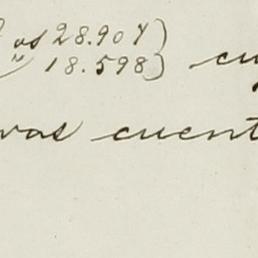 os 28.907)
" 18.598) cu
vas cuent